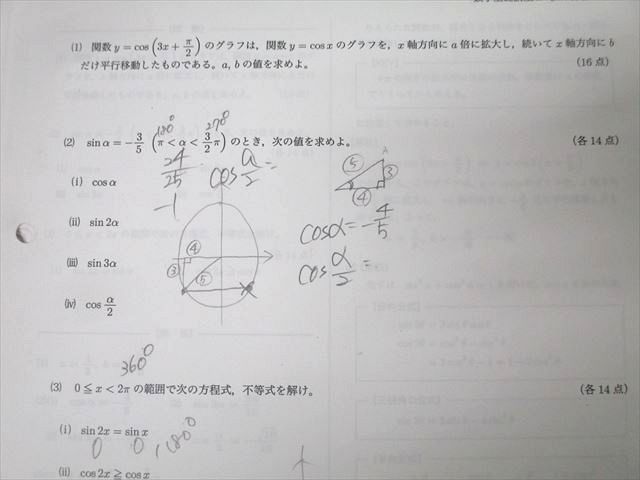 (1) 関数 y = cos(3x + π/2) のグラフは，関数 y = cos x のグラフを，x 軸方向に a 倍に拡大し，続いて x 軸方向に b
だけ平行移動したものである。a, b の値を求めよ。 (16 点)
180° 270°
(2) sin α = −3/5 (π < α < 3/2 π) のとき，次の値を求めよ。 (各 14 点)
24/25 cos α/2 =
A
⑤ ③
④
(i) cos α
−1
cos α = −4/5
(ii) sin 2α
④
③ ⑤
(iii) sin 3α
cos α/2 =
(iv) cos α/2
360°
(3) 0 ≦ x < 2π の範囲で次の方程式，不等式を解け。 (各 14 点)
(i) sin 2x = sin x
0 0, 180°
(ii) cos 2x ≧ cos x